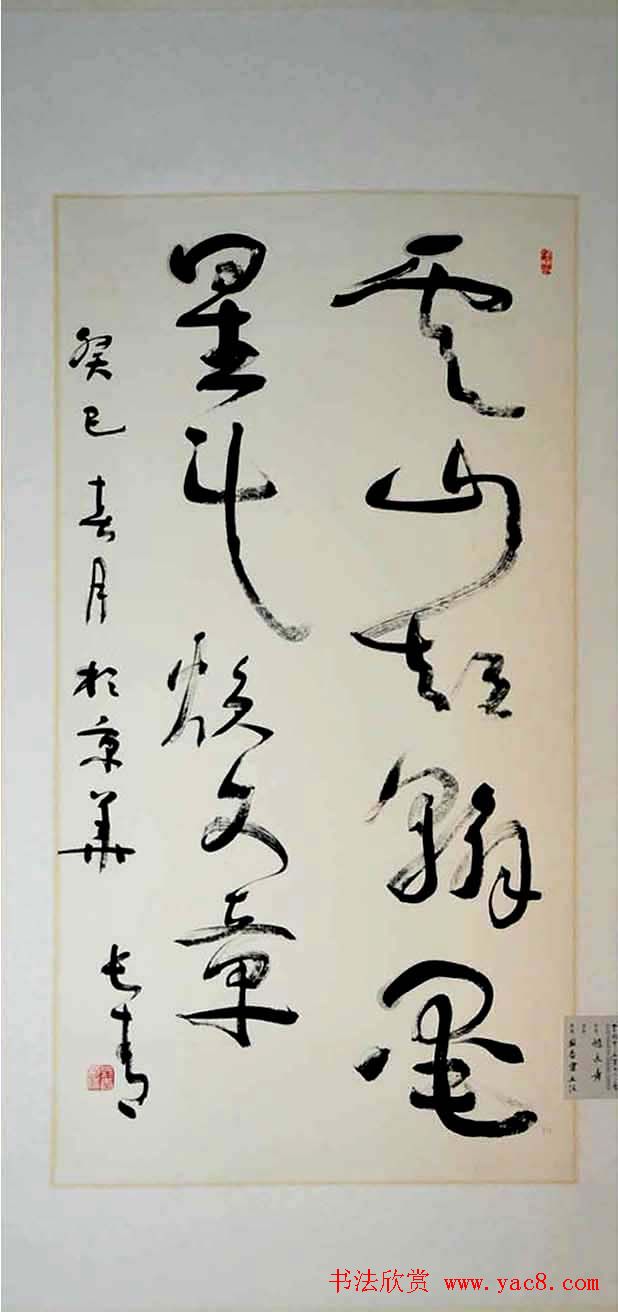 云山起翰墨
星斗焕文章
癸巳春月於京华 长青
书法欣赏 www.yac8.com